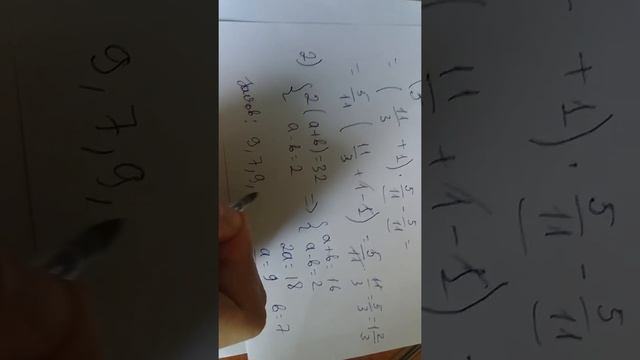 = (11/3 + 1) · 5/11 - 5/11 =
= 5/11 (11/3 + 1 - 1) = 5/11 · 11/3 = 5/3 = 1 2/3
2) { 2(a+b)=32 => { a+b=16
a-b=2 a-b=2
2a=18
a=9 b=7
Javob: 9,7,9,